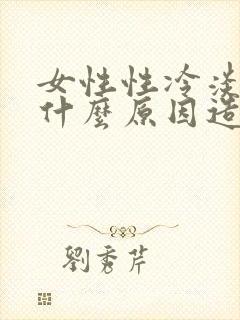 女性性冷淡
什麼原因造
劉秀芹